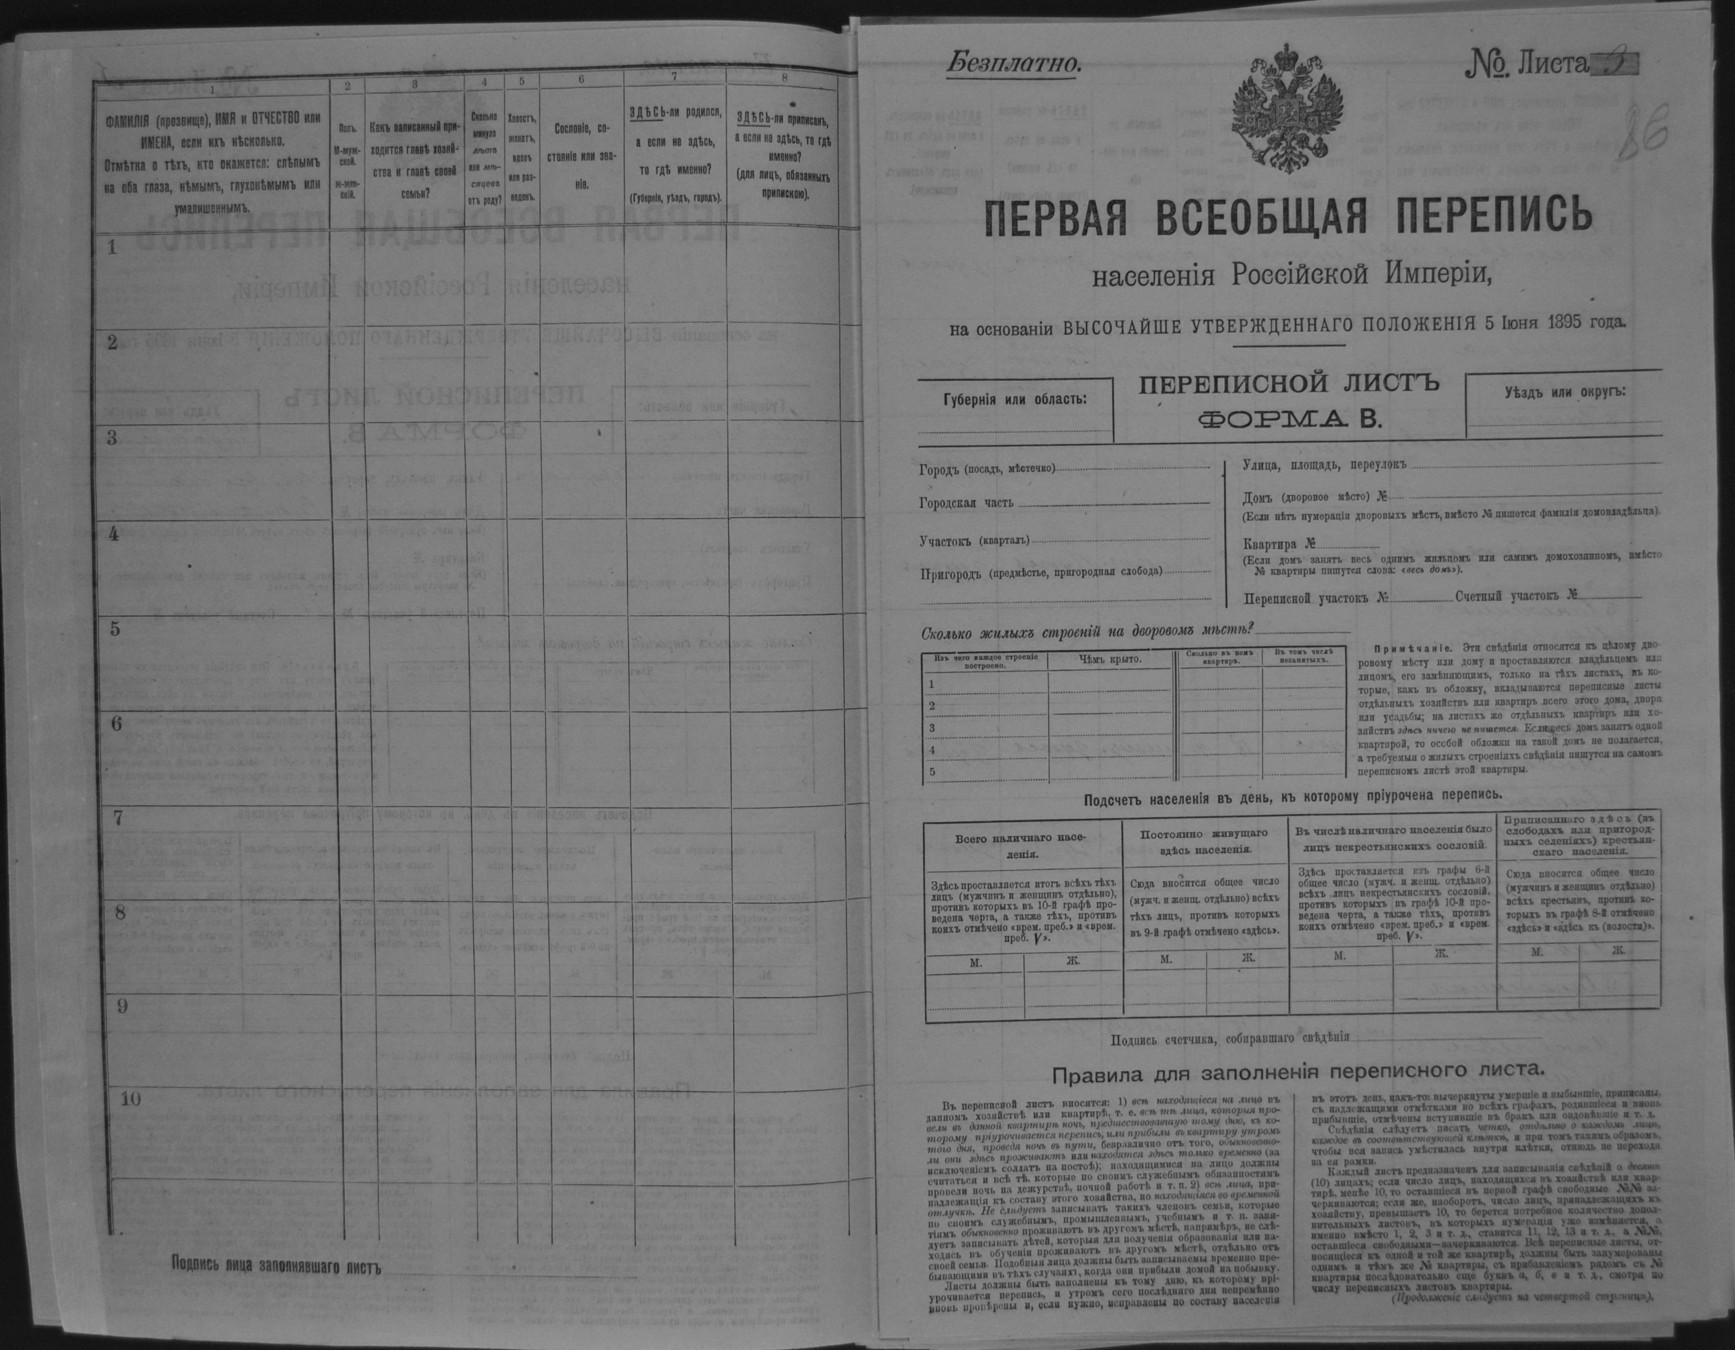 1
2
3
4
5
6
7
8
ФАМИЛІЯ (прозвище), ИМЯ и ОТЧЕСТВО или
ИМЕНА, если ихъ нѣсколько.
Отмѣтка о тѣхъ, кто окажется: слѣпымъ
на оба глаза, нѣмымъ, глухонѣмымъ или
умалишеннымъ.
Полъ.
М-муж-
ской.
Ж-жен-
скій.
Какъ записанный при-
ходится главѣ хозяй-
ства и главѣ своей
семьи?
Сколько
минуло
лѣтъ
или мѣ-
сяцевъ
отъ роду?
Холостъ,
женатъ,
вдовъ
или раз-
веденъ.
Сословіе, со-
стояніе или зва-
ніе.
ЗДѢСЬ-ли родился,
а если не здѣсь,
то гдѣ именно?
(Губернія, уѣздъ, городъ).
ЗДѢСЬ-ли приписанъ,
а если не здѣсь, то гдѣ
именно?
(для лицъ, обязанныхъ
припискою).
1
2
3
4
5
6
7
8
9
10
Подпись лица заполнявшаго листъ
Безплатно.
№ Листа 3
86
ПЕРВАЯ ВСЕОБЩАЯ ПЕРЕПИСЬ
населенія Россійской Имперіи,
на основаніи ВЫСОЧАЙШЕ УТВЕРЖДЕННАГО ПОЛОЖЕНІЯ 5 Іюня 1895 года.
Губернія или область:
ПЕРЕПИСНОЙ ЛИСТЪ
ФОРМА В.
Уѣздъ или округъ:
Городъ (посадъ, мѣстечко)
Городская часть
Участокъ (кварталъ)
Пригородъ (предмѣстье, пригородная слобода)
Улица, площадь, переулокъ
Домъ (дворовое мѣсто) №
(Если нѣтъ нумераціи дворовыхъ мѣстъ, вмѣсто № пишется фамилія домовладѣльца).
Квартира №
(Если домъ занятъ весь однимъ жильцомъ или самимъ домохозяиномъ, вмѣсто
№ квартиры пишутся слова: «весь домъ»).
Переписной участокъ № Счетный участокъ №
Сколько жилыхъ строеній на дворовомъ мѣстѣ?
Изъ чего каждое строеніе
построено.
Чѣмъ крыто.
Сколько въ немъ
квартиръ.
Въ томъ числѣ
незанятыхъ.
1
2
3
4
5
Примѣчаніе. Эти свѣдѣнія относятся къ цѣлому дво-
ровому мѣсту или дому и проставляются владѣльцемъ или
лицомъ, его замѣняющимъ, только на тѣхъ листахъ, въ ко-
торые, какъ въ обложку, вкладываются переписные листы
отдѣльныхъ хозяйствъ или квартиръ всего этого дома, двора
или усадьбы; на листахъ же отдѣльныхъ квартиръ или хо-
зяйствъ здѣсь ничего не пишется. Если весь домъ занятъ одной
квартирой, то особой обложки на такой домъ не полагается,
а требуемыя о жилыхъ строеніяхъ свѣдѣнія пишутся на самомъ
переписномъ листѣ этой квартиры.
Подсчетъ населенія въ день, къ которому пріурочена перепись.
Всего наличнаго насе-
ленія.
Постоянно живущаго
здѣсь населенія.
Въ числѣ наличнаго населенія было
лицъ некрестьянскихъ сословій.
Приписаннаго здѣсь (въ
слободахъ или пригород-
ныхъ селеніяхъ) крестьян-
скаго населенія.
Здѣсь проставляется итогъ всѣхъ тѣхъ
лицъ (мужчинъ и женщинъ отдѣльно),
противъ которыхъ въ 10-й графѣ про-
ведена черта, а также тѣхъ, противъ
коихъ отмѣчено «врем. преб.» и «врем.
преб. V».
Сюда вносится общее число
(мужч. и женщ. отдѣльно) всѣхъ
тѣхъ лицъ, противъ которыхъ
въ 9-й графѣ отмѣчено «здѣсь».
Здѣсь проставляется изъ графы 6-й
общее число (мужч. и женщ. отдѣльно)
всѣхъ лицъ некрестьянскихъ сословій.
противъ которыхъ въ графѣ 10-й про-
ведена черта, а также тѣхъ, противъ
коихъ отмѣчено «врем. преб.» и «врем.
преб. V».
Сюда вносится общее число
(мужчинъ и женщинъ отдѣльно)
всѣхъ крестьянъ, противъ ко-
торыхъ въ графѣ 8-й отмѣчено
«здѣсь» и «здѣсь къ (волости)».
М.
Ж.
М.
Ж.
М.
Ж.
М.
Ж.
Подпись счетчика, собиравшаго свѣдѣнія
Правила для заполненія переписного листа.
Въ переписной листъ вносятся: 1) всѣ находящіеся на лицо въ
данномъ хозяйствѣ или квартирѣ, т. е. всѣ тѣ лица, которыя про-
вели въ данной квартирѣ ночь, предшествовавшую тому дню, къ ко-
торому пріурочивается перепись, или прибыли въ квартиру утромъ
того дня, проведя ночь въ пути, безразлично отъ того, обыкновенно-
ли они здѣсь проживаютъ или находятся здѣсь только временно (за
исключеніемъ солдатъ на постоѣ); находящимися на лицо должны
считаться и всѣ тѣ, которые по своимъ служебнымъ обязанностямъ
провели ночь на дежурствѣ, ночной работѣ и т. п. 2) всѣ лица, при-
надлежащія къ составу этого хозяйства, но находящіяся во временной
отлучкѣ. Не слѣдуетъ записывать такихъ членовъ семьи, которые
по своимъ служебнымъ, промышленнымъ, учебнымъ и т. п. заня-
тіямъ обыкновенно проживаютъ въ другомъ мѣстѣ, напримѣръ, не слѣ-
дуетъ записывать дѣтей, которыя для полученія образованія или на-
ходясь въ обученіи проживаютъ въ другомъ мѣстѣ, отдѣльно отъ
своей семьи. Подобныя лица должны быть записываемы временно пре-
бывающими въ тѣхъ случаяхъ, когда они прибыли домой на побывку.
Листы должны быть заполнены къ тому дню, къ которому прі-
урочивается перепись, и утромъ сего послѣдняго дня непремѣнно
вновь провѣрены и, если нужно, исправлены по составу населенія
въ этотъ день, какъ-то: вычеркнуты умершіе и выбывшіе, приписаны,
съ надлежащими отмѣтками во всѣхъ графахъ, родившіеся и вновь
прибывшіе, отмѣчены вступившіе въ бракъ или овдовѣвшіе и т. д.
Свѣдѣнія слѣдуетъ писать четко, отдѣльно о каждомъ лицѣ,
каждое въ соотвѣтствующей клѣткѣ, и при томъ такимъ образомъ,
чтобы вся запись умѣстилась внутри клѣтки, отнюдь не переходя
за ея рамки.
Каждый листъ предназначенъ для записыванія свѣдѣній о десяти
(10) лицахъ; если число лицъ, находящихся въ хозяйствѣ или квар-
тирѣ, менѣе 10, то оставшіеся въ первой графѣ свободные №№ за-
черкиваются; если же, наоборотъ, число лицъ, принадлежащихъ къ
хозяйству, превышаетъ 10, то берется потребное количество допол-
нительныхъ листовъ, въ которыхъ нумерація уже измѣняется, а
именно вмѣсто 1, 2, 3 и т. д., ставится 11, 12, 13 и т. д., а №№,
оставшіеся свободными—зачеркиваются. Всѣ переписные листы, от-
носящіеся къ одной и той же квартирѣ, должны быть занумерованы
однимъ и тѣмъ же № квартиры, съ прибавленіемъ рядомъ съ №
квартиры послѣдовательно еще буквъ а, б, в и т. д., смотря по
числу переписныхъ листовъ квартиры.
(Продолженіе слѣдуетъ на четвертой страницѣ).